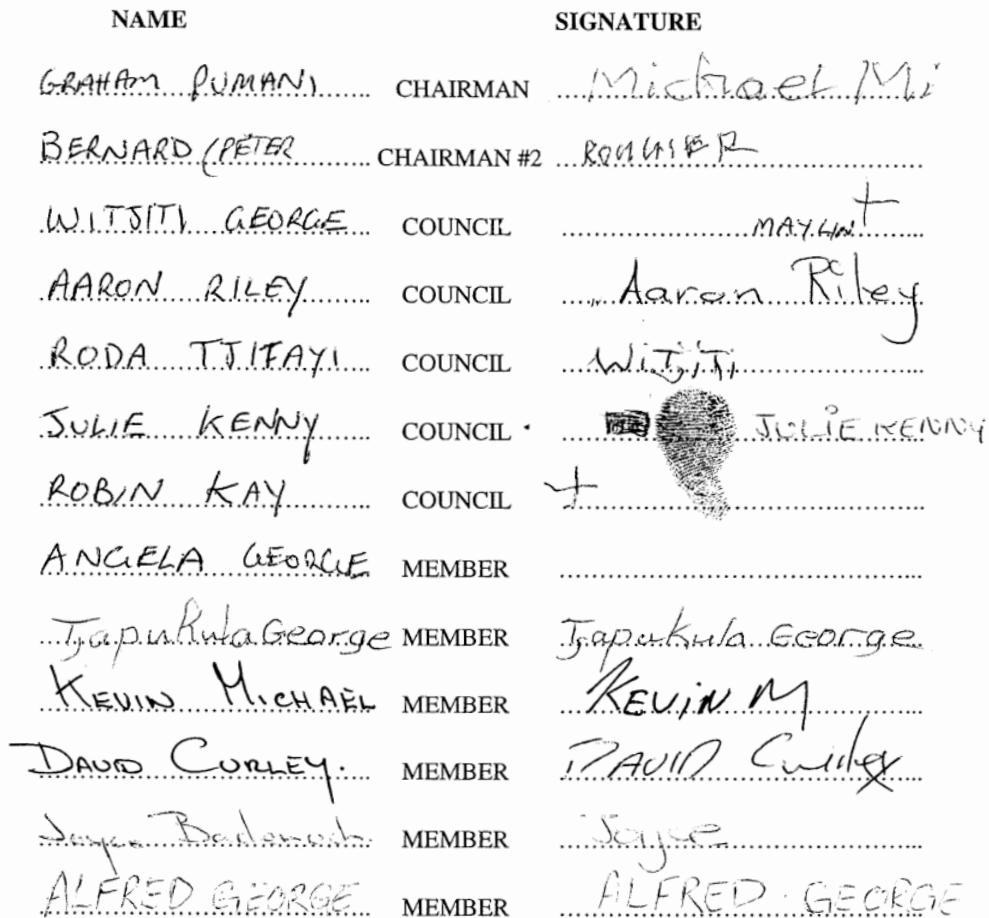 NAME SIGNATURE
GRAHAM PUMANI CHAIRMAN Michael Mi
BERNARD (PETER CHAIRMAN #2
WITJITI GEORGE COUNCIL MAYLIN
AARON RILEY COUNCIL Aaron Riley
RODA TJITAYI COUNCIL WITJITI
JULIE KENNY COUNCIL JULIE KENNY
ROBIN KAY COUNCIL
ANGELA GEORGE MEMBER
Tjapukula George MEMBER Tjapukula George
KEVIN MICHAEL MEMBER KEVIN M
DAVID CURLEY. MEMBER DAVID Curley
Joyce Badenoch MEMBER Joyce
ALFRED GEORGE MEMBER ALFRED GEORGE